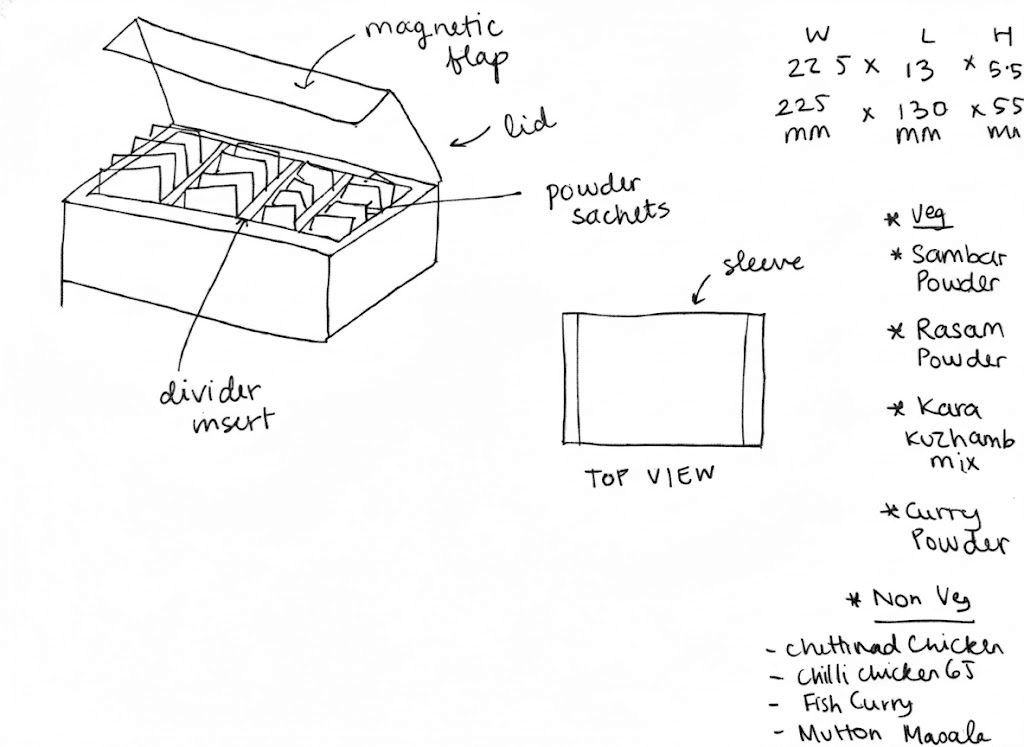 magnetic
flap
lid
powder
sachets
divider
insert
sleeve
TOP VIEW
W L H
22 5 x 13 x 5.5
225 x 130 x 55
mm mm mm
* Veg
* Sambar
Powder
* Rasam
Powder
* Kara
Kuzhamb
mix
* Curry
Powder
* Non Veg
- Chettinad Chicken
- Chilli chicken 65
- Fish Curry
- Mutton Masala